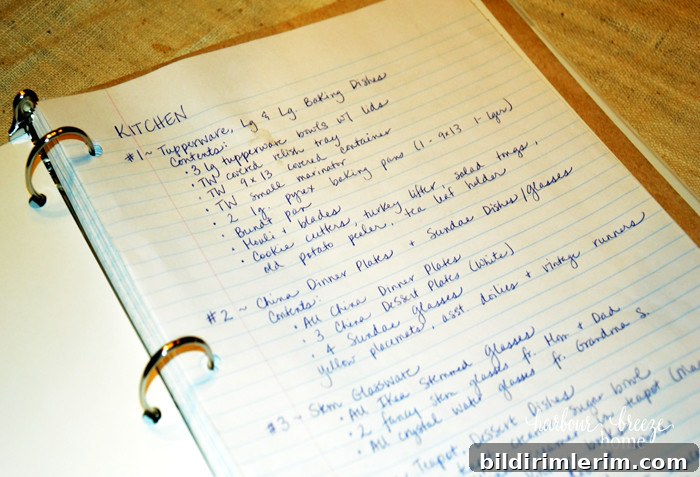 KITCHEN
#1 ~ Tupperware, Lg & Lg. Baking Dishes
Contents:
• 3 Lg tupperware bowls w/ lids
• TW covered relish tray
• TW 9x13 covered container
• TW small marinator
• 2 lg. pyrex baking pans (1-9x13 1-lger)
• Bundt Pan
• Mouli + blades
• Cookie cutters, turkey lifter, salad tongs,
old potato peeler, tea leaf holder
#2 ~ China Dinner Plates + Sundae Dishes/glasses
Contents:
• All China Dinner Plates
• 3 China Dessert Plates (White)
• 4 Sundae glasses
Yellow placemats, asst. doilies + vintage runners
#3 ~ Stem Glassware
• All Ikea Stemmed glasses
• 2 fancy stem glasses fr. Mom + Dad
• All crystal water glasses fr. Grandma S.
Teapot, Dessert Dishes
sugar bowl
teapot
harbour breeze
home
bildirimlerim.com